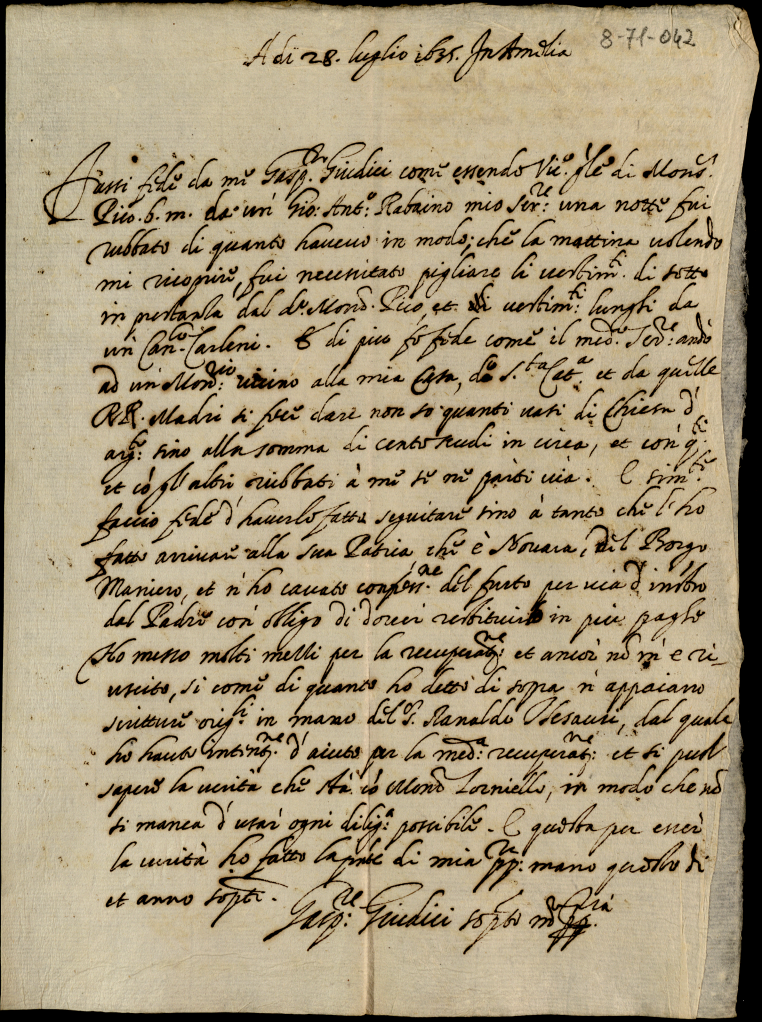 8-71-042
A dì 28. luglio 1635. In Amelia
Fassi fede da me Gasp.re Giudici come essendo Vic.o g'le di Mons.r
Pico. b. m. da un' Gio: Ant.o Rabaino mio Ser.re una notte fui
rubbato di quanto havevo in modo, che la mattina volendo
mi ricoprire, fui necessitato pigliare li vestim.ti di sotto
in prestanza dal d.o Mons.r Pico, et di vestim.ti lunghi da
un' Can.co Carleni. E di più fo fede come il med.o Ser.re andò
ad un' Mon.rio vicino alla mia Casa, di S.ta Cat.a et da quelle
RR. Madri si fece dare non so quanti vasi di Chiesa d'
arg.to sino alla somma di cento scudi in circa, et con' q.ti
et cō gl'altri rubbati à me se ne partì via. E sim.te
faccio fede d'haverlo fatto seguitare sino à tanto che l'ho
fatto arrivare alla sua Patria che è Novara, del Borgo
Maniero, et n'ho cavato confess.ne del furto per via d'
dal Padre con' obligo di dover restituire in più paghe
Ho messo molti mezzi per la recuperat.ne et ancor nō m'è ri-
uscito, si come di quanto ho detto di sopra n'appaiano
scritture orig.li in mano del S.r Ranaldo Thesauri, dal quale
ho hauto intent.ne d'aiuto per la med.a recuperat.ne et si può
sapere la verità che sta cō Mons.r Torniello, in modo che nō
si manca d'usar' ogni dilig.a possibile. E questa per esser'
la verità ho fatto la pn'te di mia pp.a mano questo dì
et anno sop.ti.
Gasp.re Giudici sop.to mō pp.a